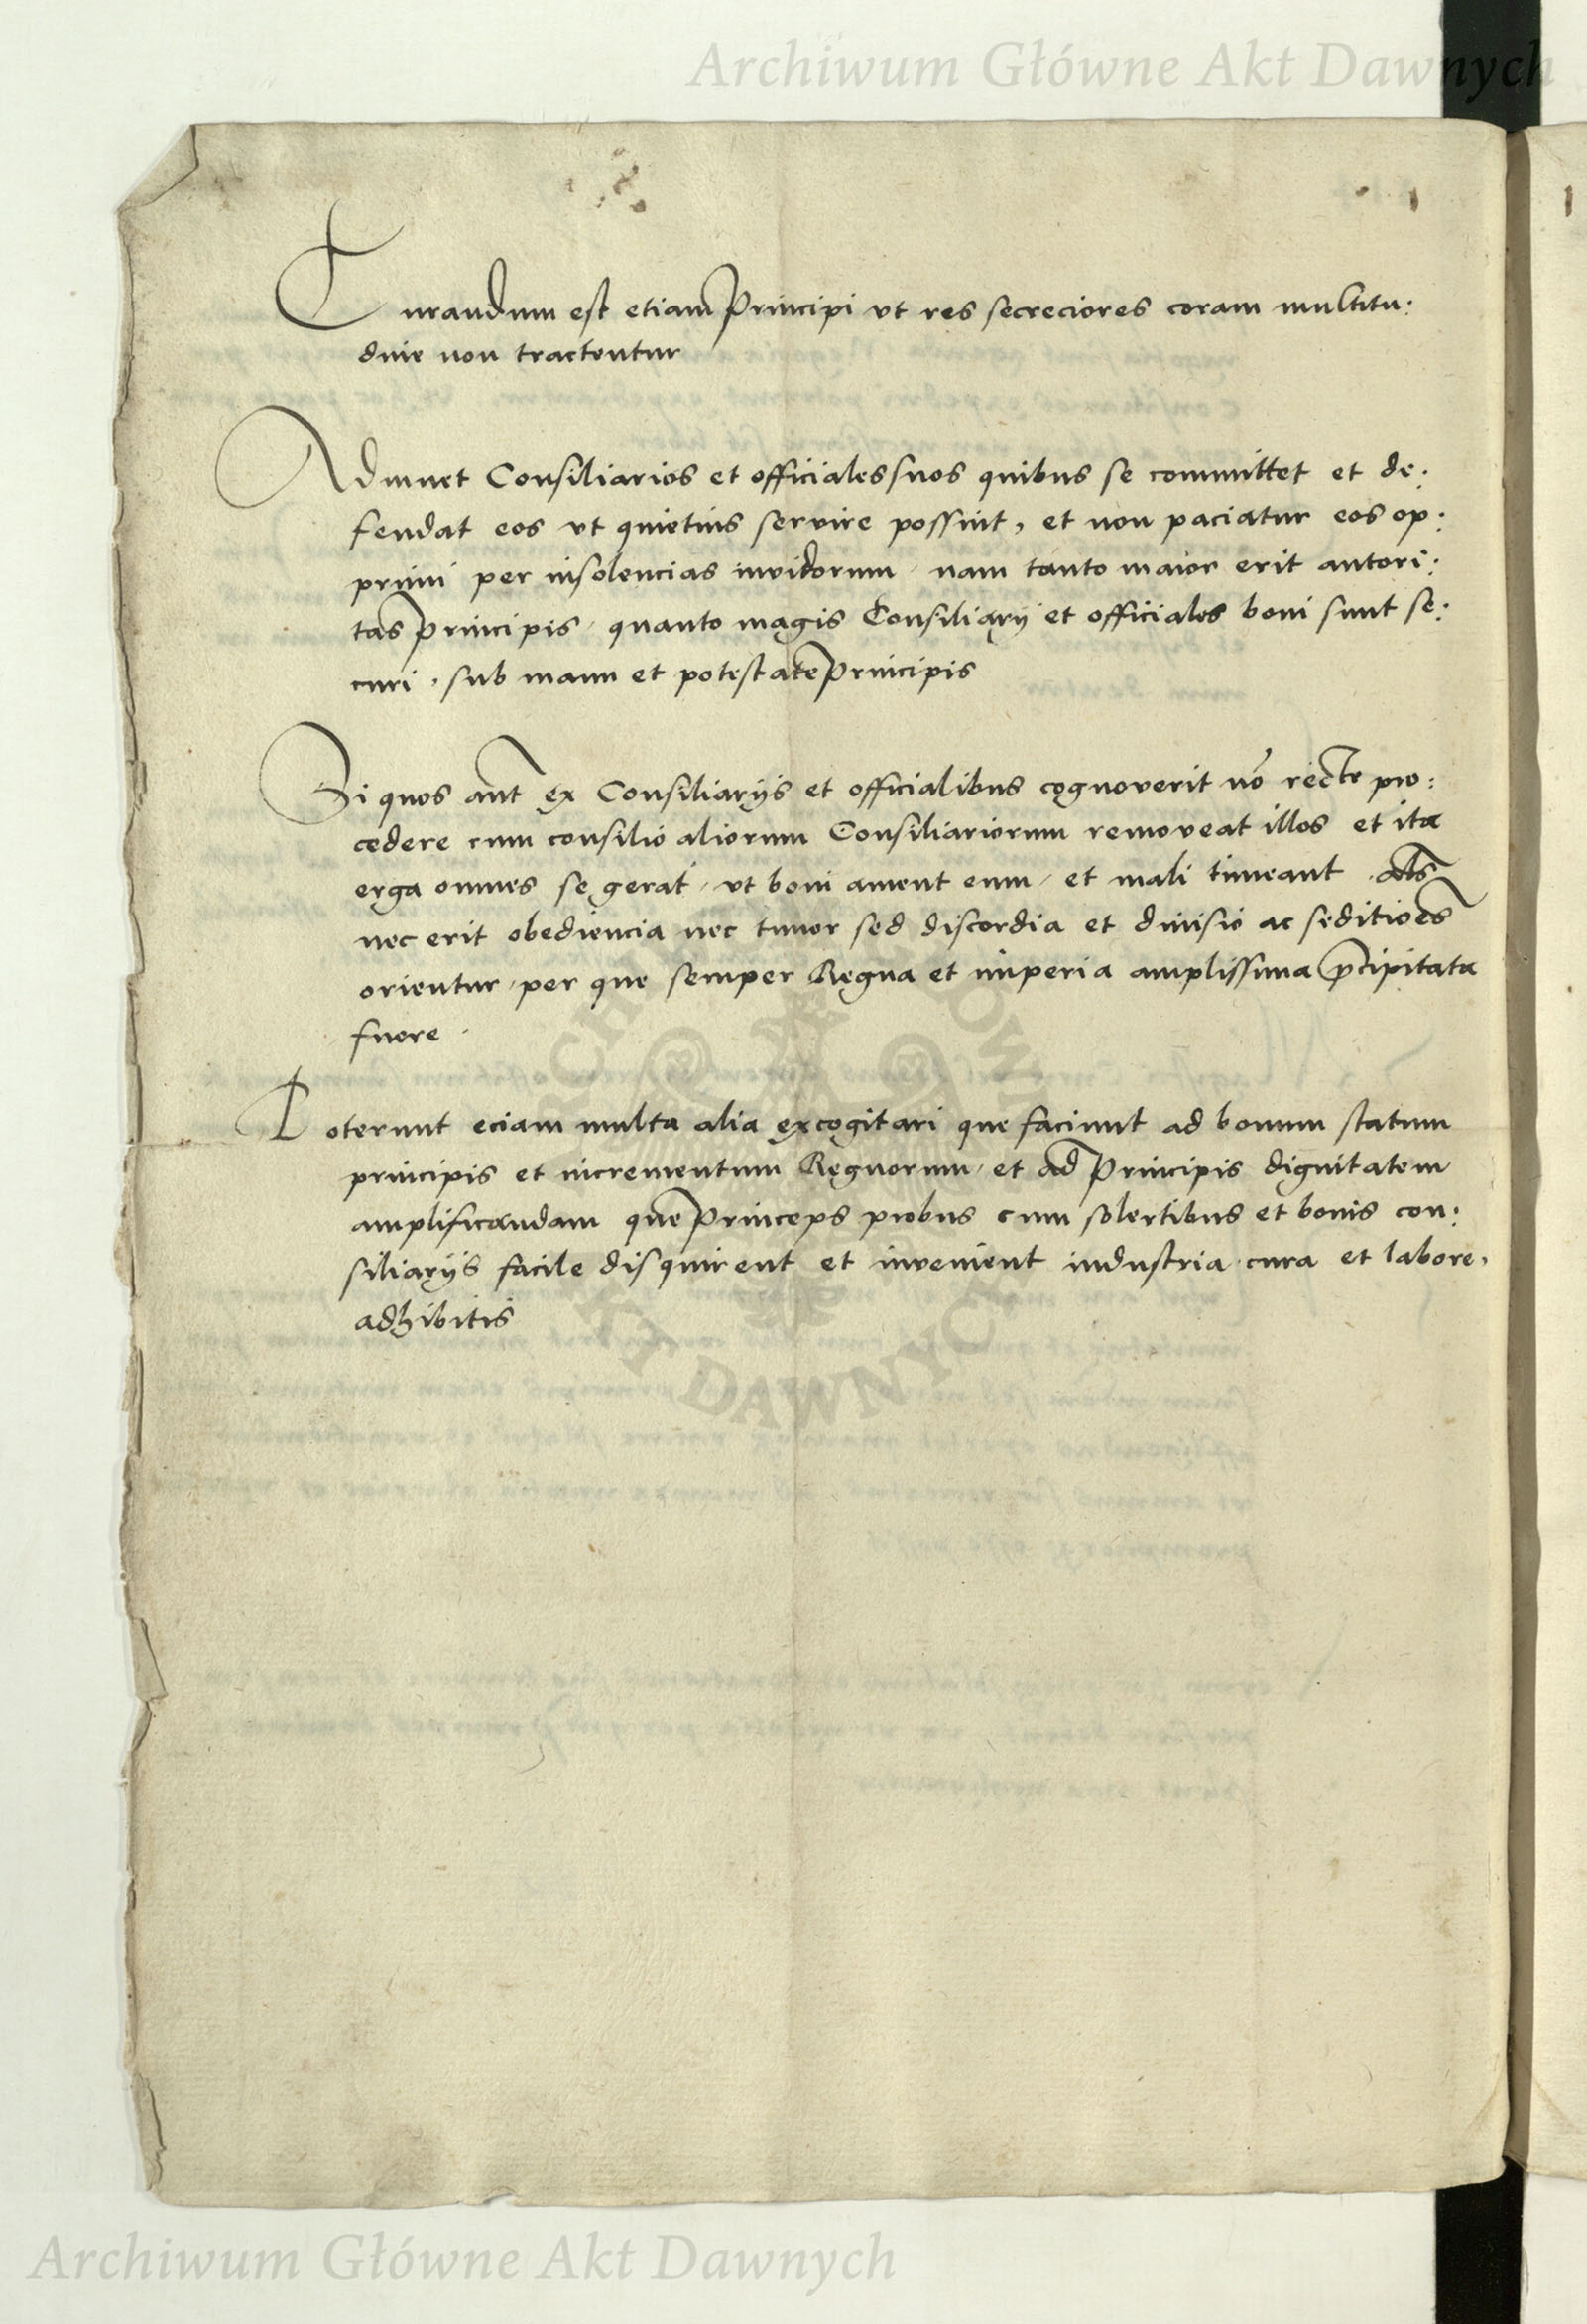 Archiwum Główne Akt Dawnych
Curandum est etiam Principi vt res secreciores coram multitu:
dine non tractentur
Adiuuet Consiliarios et officiales suos quibus se committet et de:
fendat eos vt quietius servire possint, et non paciatur eos op:
primi per insolencias invidorum, nam tanto maior erit autori:
tas principis, quanto magis Consiliarij et officiales boni sunt se:
curi, sub manu et potestate Principis
Si quos aut ex Consiliarijs et officialibus cognoverit nō recte pro:
cedere cum consilio aliorum Consiliariorum removeat illos et ita
erga omnes se gerat, vt boni ament eum, et mali timeant. Als
nec erit obediencia nec timor sed discordia et diuisio ac seditioes
orientur, per que semper Regna et imperia amplissima p̄cipitata
fuere.
Poterunt eciam multa alia excogitari que faciunt ad bonum statum
principis et incrementum Regnorum, et ad Principis dignitatem
amplificandam que Princeps probus cum solertibus et bonis con:
siliarijs facile disquirent et invenient industria cura et labore,
adhibitis
ARCHI
OWN
AKT DAWNYCH
Archiwum Główne Akt Dawnych